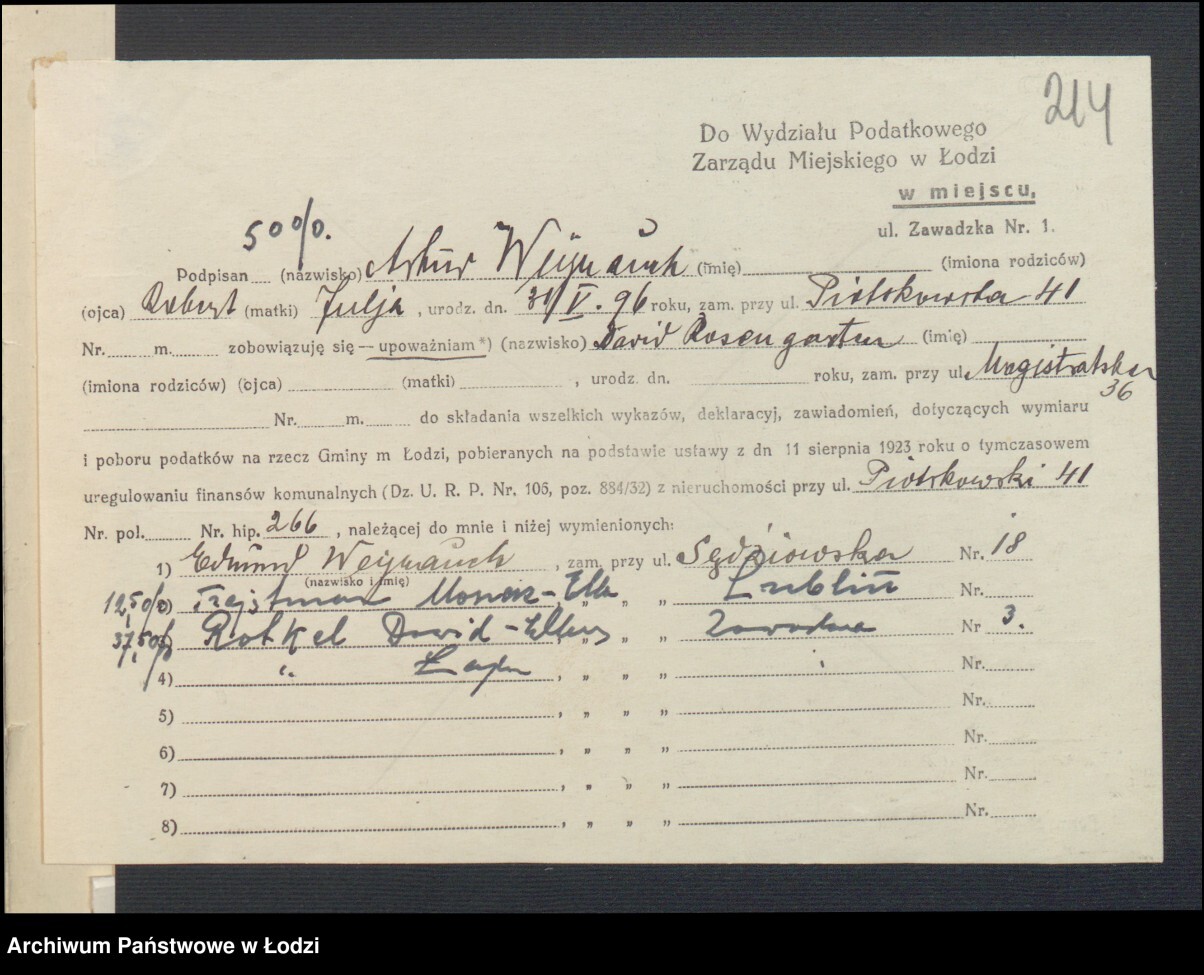 214
Do Wydziału Podatkowego
Zarządu Miejskiego w Łodzi
w miejscu,
ul. Zawadzka Nr. 1.
50%.
Podpisan (nazwisko) Artur Wejnrauch (imię) (imiona rodziców)
(ojca) Robert (matki) Julja, urodz. dn. 30/V. 96 roku, zam. przy ul. Piotrkowska 41
Nr. m. zobowiązuję się — upoważniam *) (nazwisko) David Rosengarten (imię)
(imiona rodziców) (ojca) (matki) , urodz. dn. roku, zam. przy ul. Magistratska
36
Nr. m. do składania wszelkich wykazów, deklaracyj, zawiadomień, dotyczących wymiaru
i poboru podatków na rzecz Gminy m Łodzi, pobieranych na podstawie ustawy z dn 11 sierpnia 1923 roku o tymczasowem
uregulowaniu finansów komunalnych (Dz. U. R. P. Nr. 106, poz. 884/32) z nieruchomości przy ul. Piotrkowski 41
Nr. pol. Nr. hip. 266 , należącej do mnie i niżej wymienionych:
1) Edmund Wejnrauch , zam. przy ul. Sędziowska Nr. 18
(nazwisko i imię)
12,5% Frajtman - Ella „ „ Lublin Nr.
37,50% Rotkel Dawid - „ „ Nr 3.
4) „ , „ „ „ Nr.
5) , „ „ „ Nr.
6) , „ „ „ Nr.
7) , „ „ „ Nr.
8) , „ „ „ Nr.
Archiwum Państwowe w Łodzi